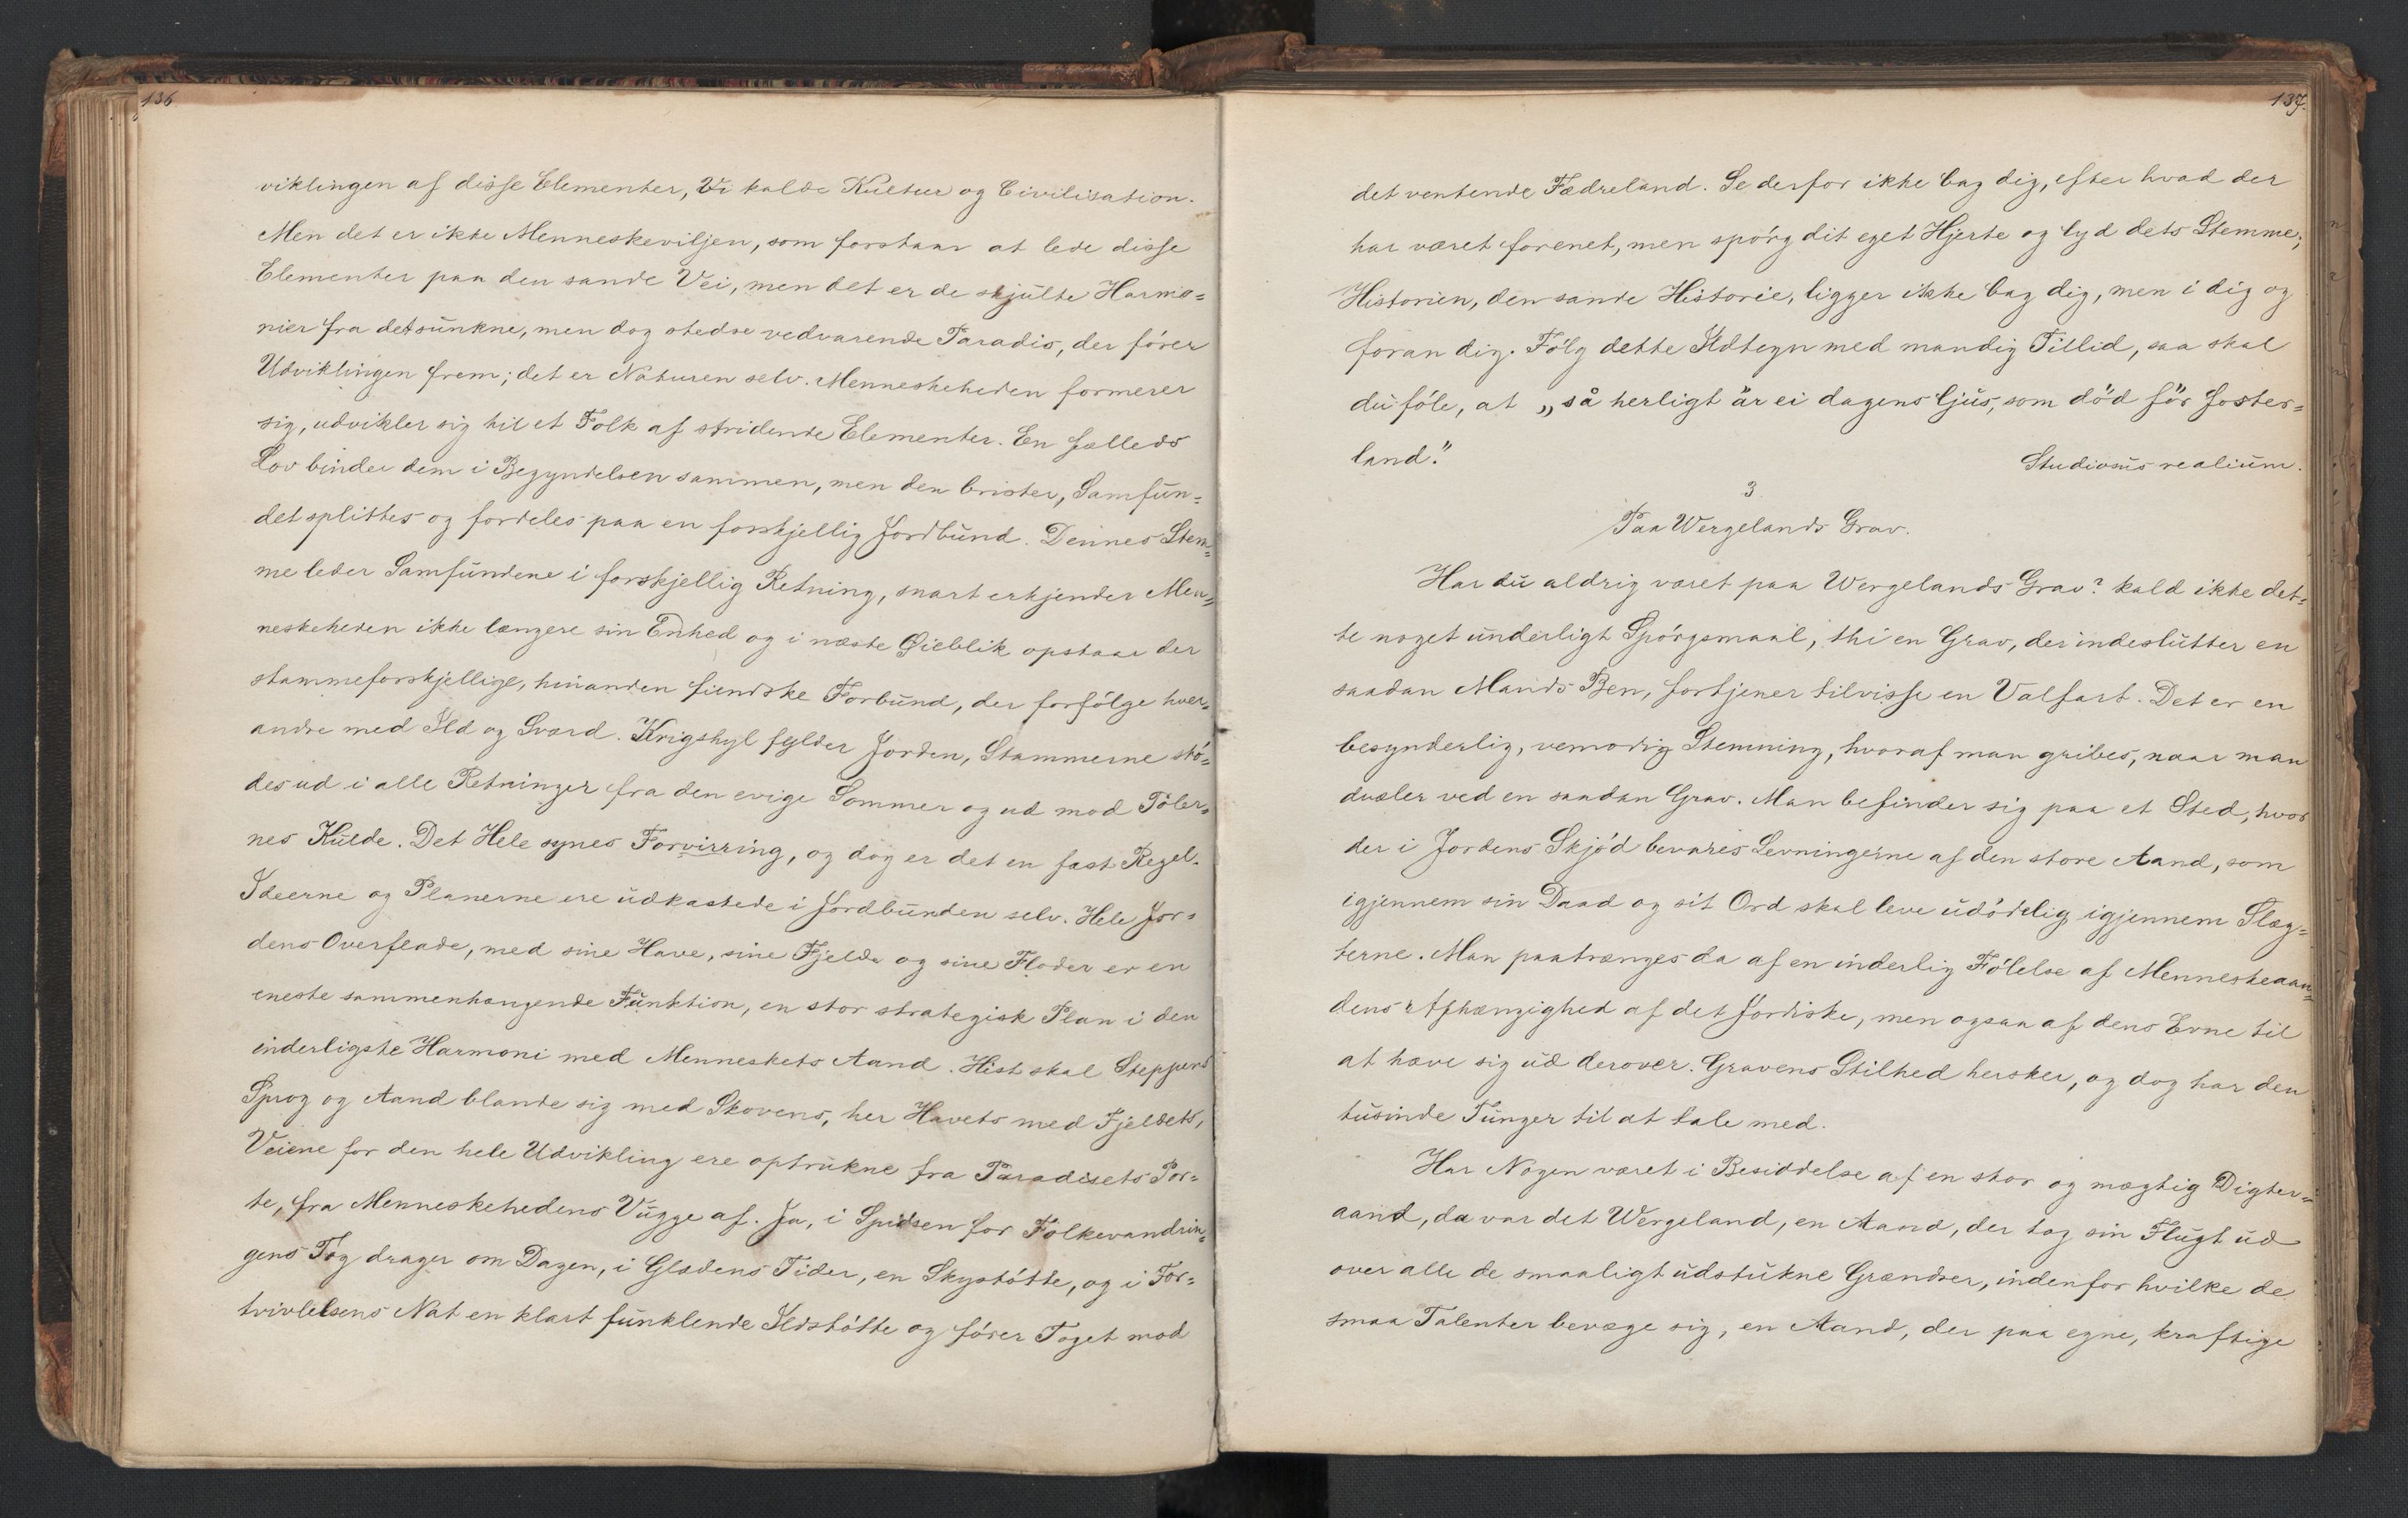 136
viklingen af disse Elementer, Vi kalde Kultur og Civilisation.
Men det er ikke Menneskeviljen, som forstaar at lede disse
Elementer paa den sande Vei, men det er de skjulte Harmo=
nier fra det sunkne, men dog stedse vedvarende Paradis, der fører
Udviklingen frem; det er Naturen selv. Menneskeheden formerer
sig, udvikler sig til et Folk af stridende Elementer. En fælleds
Lov binder dem i Begyndelsen sammen, men den brister, Samfun=
det splittes og fordeles paa en forskjellig Jordbund. Dennes Stem=
me leder Samfundene i forskjellig Retning, snart erkjender Men=
neskeheden ikke længere sin Enhed og i næste Øieblik opstaar der
stammeforskjellige, hinanden fiendske Forbund, der forfølge hver=
andre med Ild og Sværd. Krigshyl fylder Jorden, Stammerne stø=
des ud i alle Retninger fra den evige Sommer og ud mod Poler=
nes Kulde. Det Hele synes Forvirring, og dog er det en fast Regel.
Ideerne og Planerne ere udkastede i Jordbunden selv. Hele Jor=
dens Overflade, med sine Have, sine Fjelde og sine Floder er en
eneste sammenhængende Funktion, en stor strategisk Plan i den
inderligste Harmoni med Menneskets Aand. Hist skal Steppens
Sprog og Aand blande sig med Skovens, her Havets med Fjeldets,
Veiene for den hele Udvikling ere optrukne fra Paradisets Por=
te, fra Menneskehedens Vugge af. Ja, i Spidsen for Folkevandrin=
gens Tog drager om Dagen, i Glædens Tider, en Skystøtte, og i For=
tvivlelsens Nat en klart funklende Ildstøtte og fører Toget mod
137.
det ventende Fædreland. Se derfor ikke bag dig, efter hvad der
har været forenet, men spørg dit eget Hjerte og lyd dets Stemme;
Historien, den sande Historie, ligger ikke bag dig, men i dig og
foran dig. Følg dette Ildtegn med mandig Tillid, saa skal
du føle, at „så herligt är ei dagens ljus, som död för foster=
land."
Studiosus realium.
3
Paa Wergelands Grav.
Har du aldrig været paa Wergelands Grav? kald ikke det=
te noget underligt Spørgsmaal, thi en Grav, der indeslutter en
saadan Mands Ben, fortjener tilvisse en Valfart. Det er en
besynderlig, vemodig Stemning, hvoraf man gribes, naar man
dvæler ved en saadan Grav. Man befinder sig paa et Sted, hvor
der i Jordens Skjød bevares Levningerne af den store Aand, som
igjennem sin Daad og sit Ord skal leve udødelig igjennem Slæg=
terne. Man paatrænges da af en inderlig Følelse af Menneskeaan=
dens Afhængighed af det Jordiske, men ogsaa af dens Evne til
at hæve sig ud derover. Gravens Stilhed hersker, og dog har den
tusinde Tunger til at tale med.
Har Nogen været i Besiddelse af en stor og mægtig Digter=
aand, da var det Wergeland, en Aand, der tog sin Flugt ud
over alle de smaaligt udstukne Grændser, indenfor hvilke de
smaa Talenter bevæge sig, en Aand, der paa egne, kraftige